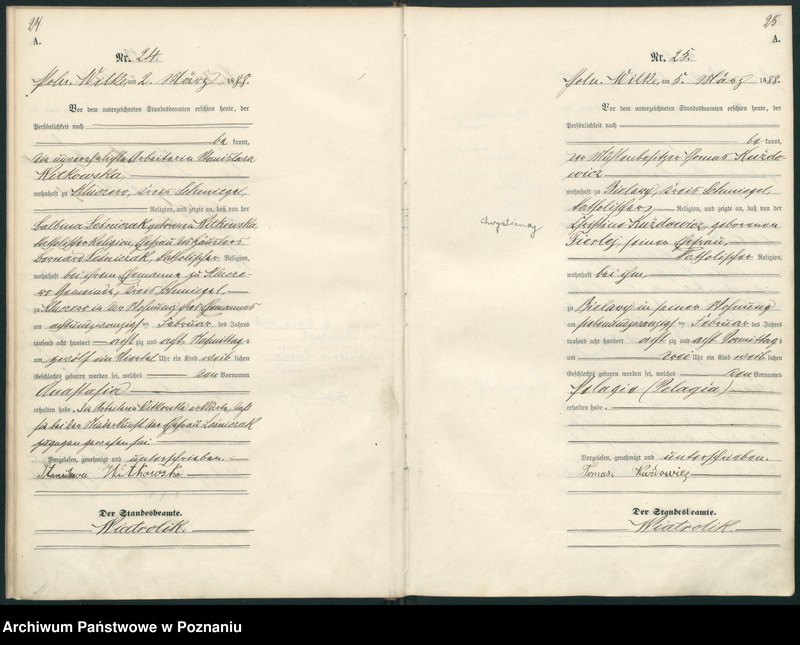 24
A.
Nr. 24.
Poln. Wilke, am 2. März 1888.
Vor dem unterzeichneten Standesbeamten erschien heute, der
Persönlichkeit nach
be kannt,
die unverehelichte Arbeiterin Stanislawa
Witkowska,
wohnhaft zu Kreis Schmiegel
Religion, und zeigte an, daß von der
Balbina Leśniczak geborenen Witkowska,
katholischer Religion, Ehefrau des Häuslers
Leśniczak, katholischer Religion,
wohnhaft bei ihrem Ehemanne zu
Gemeinde, Kreis Schmiegel,
zu in der Wohnung ihres Ehemannes
am achtundzwanzigsten Februar des Jahres
tausend acht hundert achtzig und acht Nachmittags
um zwölf ein Viertel Uhr ein Kind weib lichen
Geschlechts geboren worden sei, welches den Vornamen
Anastasia
erhalten habe. Die Arbeiterin Witkowska erklärte, daß
sie bei der Niederkunft der Ehefrau Leśniczak
zugegen gewesen sei
Vorgelesen, genehmigt und unterschrieben.
Stanisława Witkowska
Der Standesbeamte.
Wiatrolik.
25
A.
Nr. 25.
Poln. Wilke, am 5. März 1888.
Vor dem unterzeichneten Standesbeamten erschien heute, der
Persönlichkeit nach
be kannt,
der Tomas Kuźdo-
wicz
wohnhaft zu Bielawy, Kreis Schmiegel
katholischer Religion, und zeigte an, daß von der
Christine Kuźdowicz, geborenen
seiner Ehefrau,
katholischer Religion,
wohnhaft bei ihm,
zu Bielawy in seiner Wohnung
am siebenundzwanzigsten Februar des Jahres
tausend acht hundert achtzig und acht Vormittags
um zwei Uhr ein Kind weib lichen
Geschlechts geboren worden sei, welches den Vornamen
Pelagia (Pelagia)
erhalten habe.
Vorgelesen, genehmigt und unterschrieben.
Tomas Kuźdowicz
Der Standesbeamte.
Wiatrolik.
Chrystiennaz
Archiwum Państwowe w Poznaniu